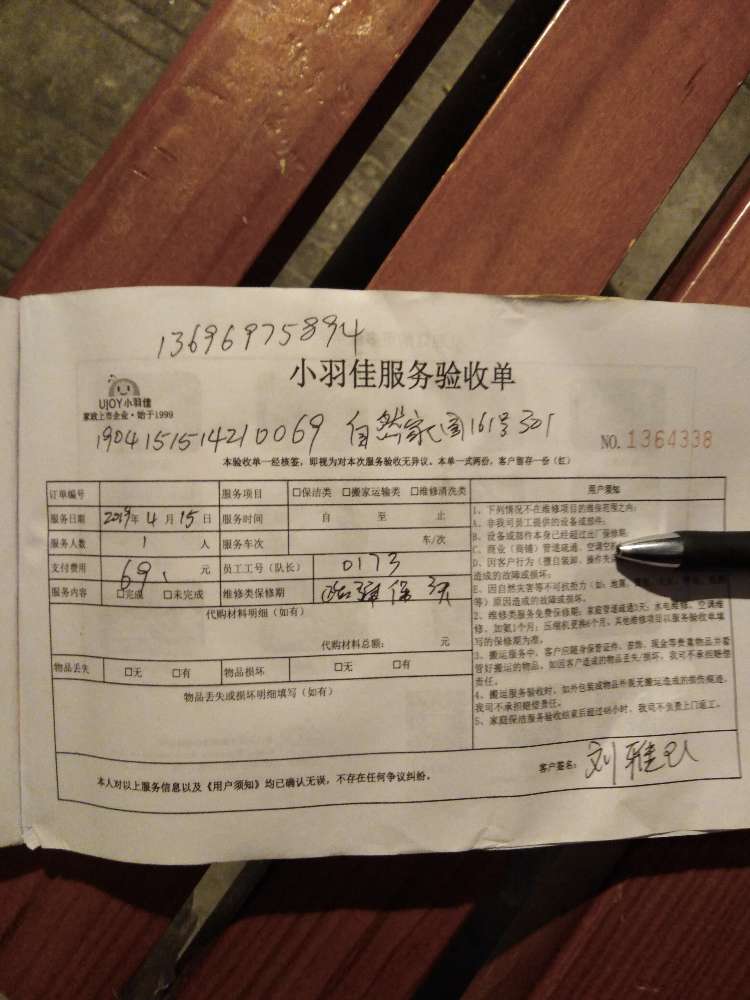 13696975894
小羽佳服务验收单
UJOY小羽佳
家政上市企业·始于1999
1904151514210069 自然家园161号301
NO.1364338
本验收单一经核签，即视为对本次服务验收无异议。本单一式两份，客户留存一份（红）
订单编号 服务项目 □保洁类 □搬家运输类 □维修清洗类
服务日期 2019年 4 月 15 日 服务时间 自 至 止
服务人数 1 人 服务车次 车/次
支付费用 69. 元 员工工号（队长） 0173
服务内容 □完成 □未完成 维修类保修期 保
代购材料明细（如有）
代购材料总额： 元
物品丢失 □无 □有 物品损坏 □无 □有
物品丢失或损坏明细填写（如有）
用户须知
1、下列情况不在维修项目的维保范围之内：
A、非我司员工提供的设备或部件；
B、设备或部件本身已经超过出厂保修期；
C、商业（商铺）管道疏通、空调空
D、因客户行为（擅自装卸、操作失
造成的故障或损坏；
E、因自然灾害等不可抗拒力（如：地震、
等）原因造成的故障或损坏。
2、维修类服务免费保修期：家庭管道疏通3天；水电维修、空调维
修、加氟1个月；压缩机更换6个月。其他维修项目以服务验收单填
写的保修期为准。
3、搬运服务中，客户应随身保管证件、首饰、现金等贵重物品并看
管好搬运的物品。如因客户造成的物品丢失/损坏，我司不承担赔偿
责任。
4、搬运服务验收时，如外包装或物品外观无搬运造成的损伤痕迹，
我司不承担赔偿责任。
5、家庭保洁服务验收结束后超过48小时，我司不免费上门返工。
本人对以上服务信息以及《用户须知》均已确认无误，不存在任何争议纠纷。
客户签名： 刘雅